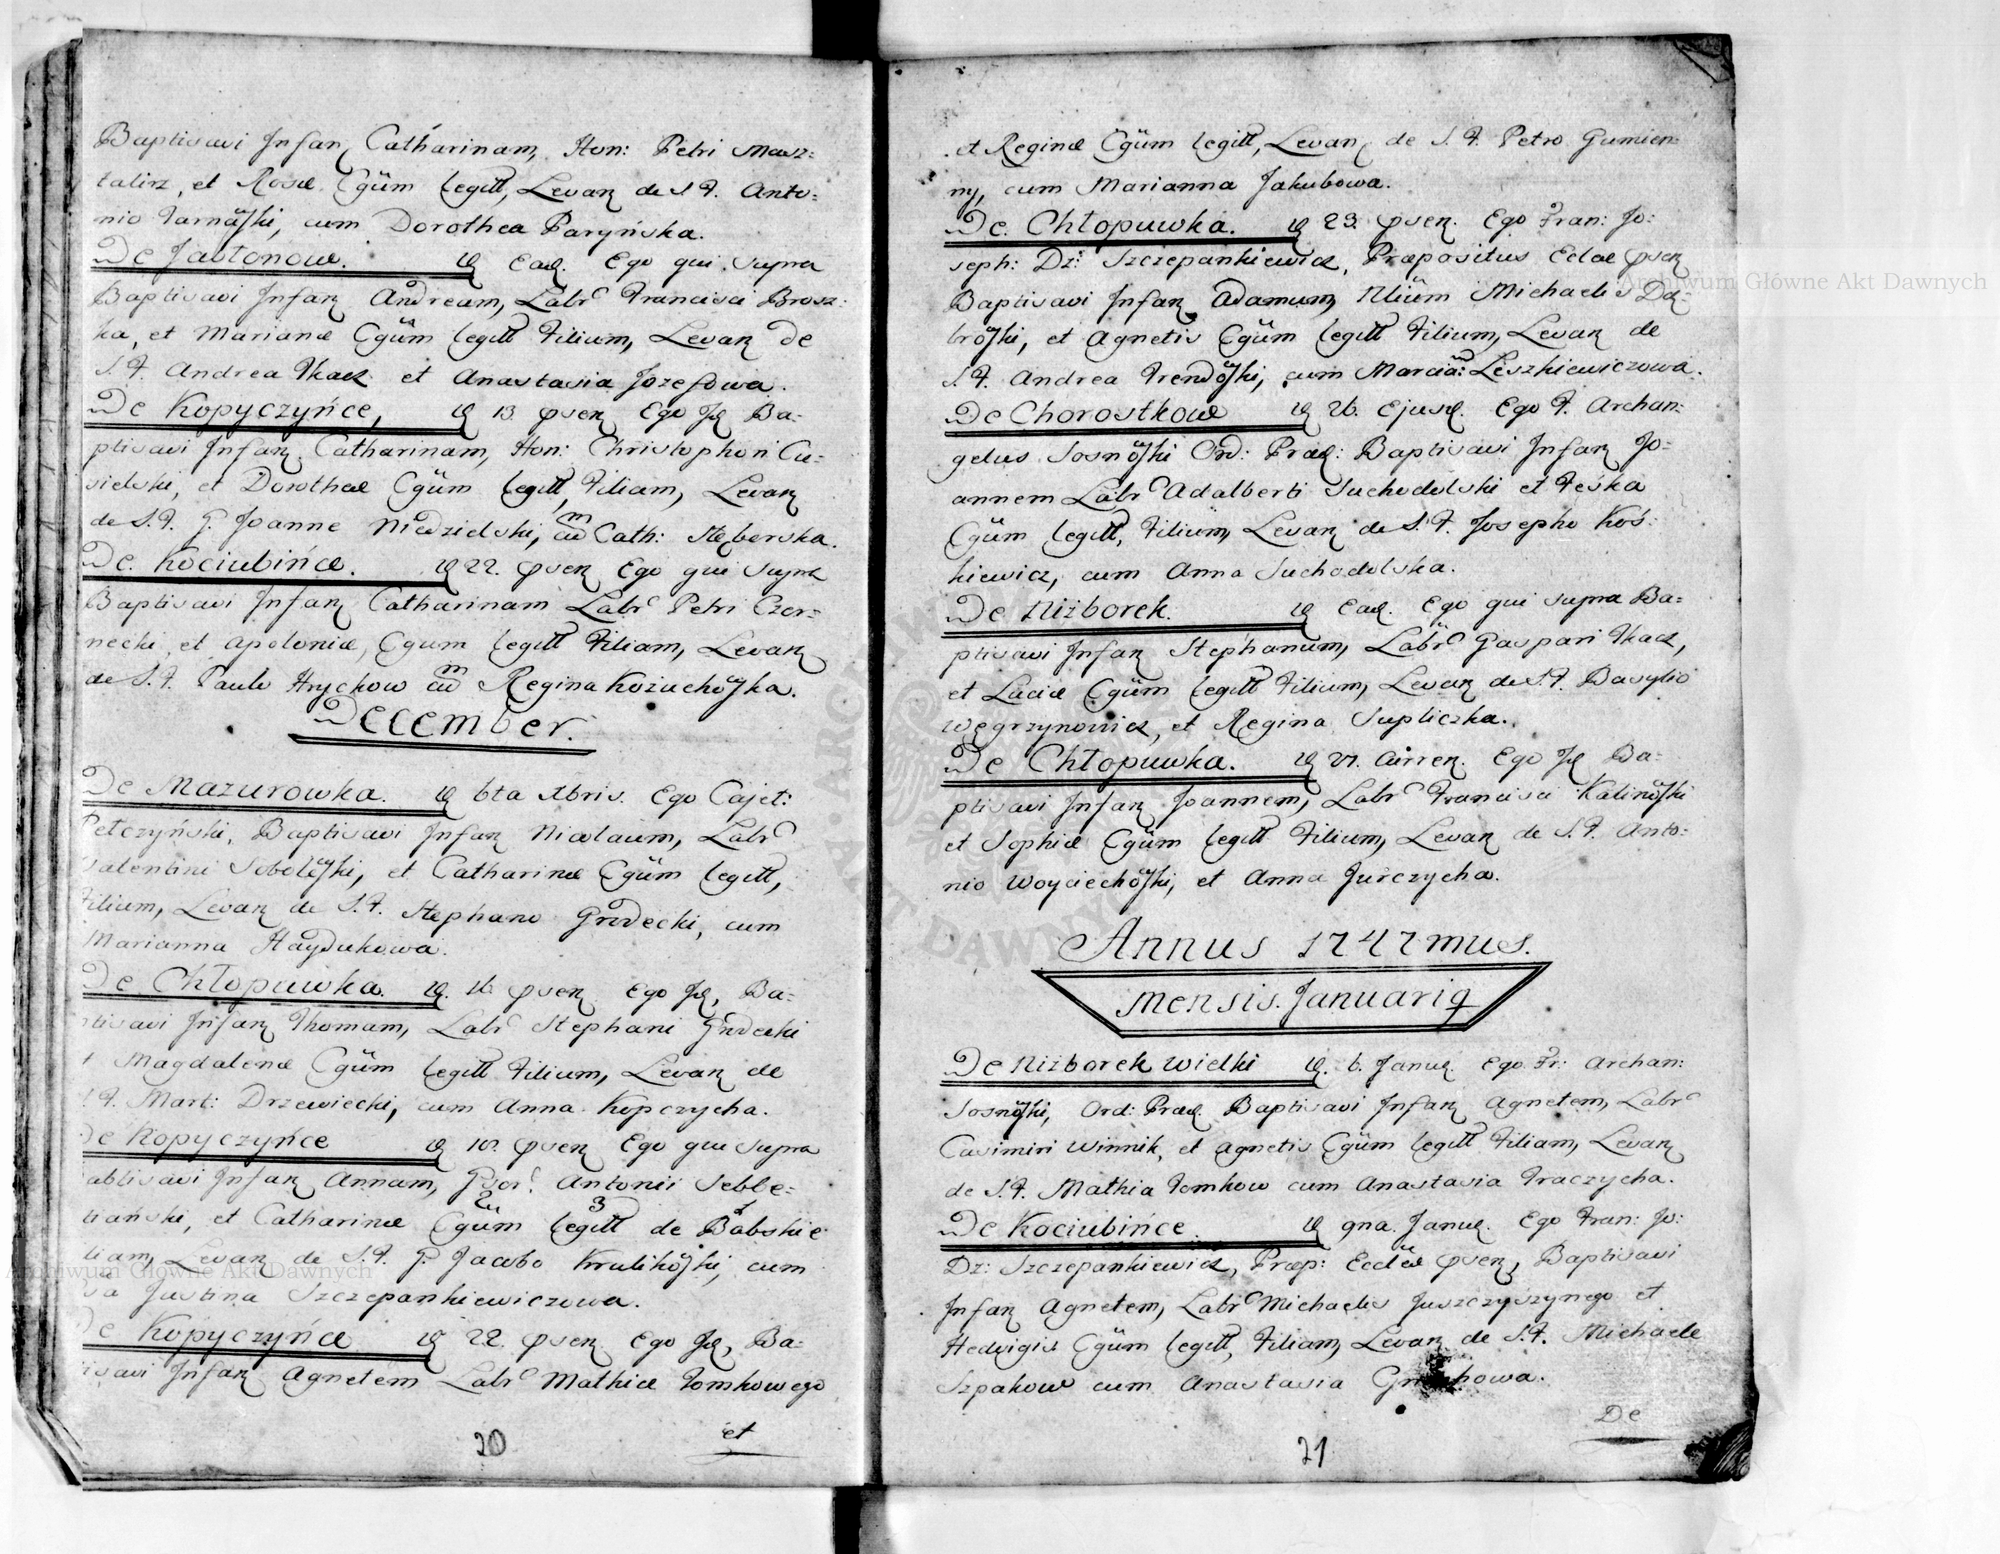 Baptisavi Infan Catharinam, Hon: Petri Masz:
talirz, et Rosæ Cgüm legitt, Levan de S. F. Anto:
nio Tarnowski, cum Dorothea Paryńska.
De Jabłonow. Ead. Ego qui supra
Baptisavi Infan Andream, Labr Francisci Brosz:
ka, et Marianæ Cgüm legitt Filium, Levan de
S. F. Andrea Tkacz et Anastasia Jozefowa.
De Kopyczyńce, 13 Ego Id Ba-
ptisavi Infan Catharinam, Hon: Christophori Cu-
sielski, et Dorotheæ Cgüm legitt, Filiam, Levan
de S. F. G. Joanne Niedzielski, cum Cath: Stęberska.
De Kociubińce. 22. Ego qui supra
Baptisavi Infan Catharinam Labr Petri Czer-
necki, et Apoloniæ, Cgum legitt Filiam, Levan
de S. F. Paulo Hryckow cum Regina Kożuchowska.
December.
De Mazurowka. 6ta Xbris. Ego Cajet:
Petczyński, Baptisavi Infan Nicolaum, Labr
Valentini Sobolewski, et Catharinæ Cgüm legitt,
Filium, Levan de S. F. Stephano Grodecki, cum
Marianna Haydukowa.
De Chłopuwka. 16 Ego Id, Ba-
ptisavi Infan Thomam, Labr Stephani Grodecki
et Magdalenæ Cgüm legitt Filium, Levan de
S. F. Mart: Drzewiecki, cum Anna Kopczycha.
De Kopyczyńce 10. Ego qui supra
abtisavi Infan Annam, Antonii Seble-
tiański, et Catharinæ Cgüm legitt de Babskie
liam, Levan de S. F. G. Jacobo Krulikowski, cum
Justina Szczepankiewiczowa.
De Kopyczyńce 22. Ego Id, Ba-
tisavi Infan Agnetem Labr Mathiæ Tomkowego
et
20
et Reginæ Cgüm legitt, Levan de S. F. Petro Gumien-
ny, cum Marianna Jakubowa.
De Chłopuwka. 23. Ego Fran: Jo:
seph: Dz: Szczepankiewicz, Præpositus Eclæ
Baptisavi Infan Adamum, Michaelis Dą-
browski, et Agnetis Cgüm legitt Filium, Levan de
S. F. Andrea Trendowski, cum Leszkiewiczowa.
De Chorostkow 26. Ejusd. Ego F. Archan:
gelus Sosnowski Ord: Præd: Baptisavi Infan Jo-
annem Labr Adalberti Suchodolski et Feśka
Cgüm legitt, Filium, Levan de S. F. Josepho Koś-
kiewicz, cum Anna Suchodolska.
De Niżborek. Ead. Ego qui supra Ba-
ptisavi Infan Stephanum, Labr Gaspari Tkacz,
et Luciæ Cgüm legitt Filium, Levan de S. F. Basylio
Węgrzynowicz, et Regina Supliczka.
De Chłopuwka. 27. Ego Id Ba-
ptisavi Infan Joannem, Labr Francisci Kalinowski
et Sophiæ Cgüm legitt Filium, Levan de S. F. Anto-
nio Woyciechowski, et Anna Jurczycha.
Annus 1747mus.
Mensis. Januarij
De Niżborek Wielki 6. Janu. Ego Fr: Archan:
Sosnowski, Ord: Præd. Baptisavi Infan Agnetem, Labr
Casimiri Winnik, et Agnetis Cgüm legitt Filiam, Levan
de S. F. Mathia Tomkow cum Anastasia Traczycha.
De Kociubińce 9na. Janu. Ego Fran: Jo:
Dz: Szczepankiewicz, Præp: Ecclæ Baptisavi
Infan Agnetem, Labr Michaelis Juszczyszynego et
Hedvigis Cgüm legitt, Filiam, Levan de S. F. Michaele
Szpakow cum Anastasia
De
21
Archiwum Główne Akt Dawnych
Archiwum Główne Akt Dawnych